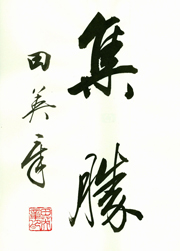 集勝
田英章